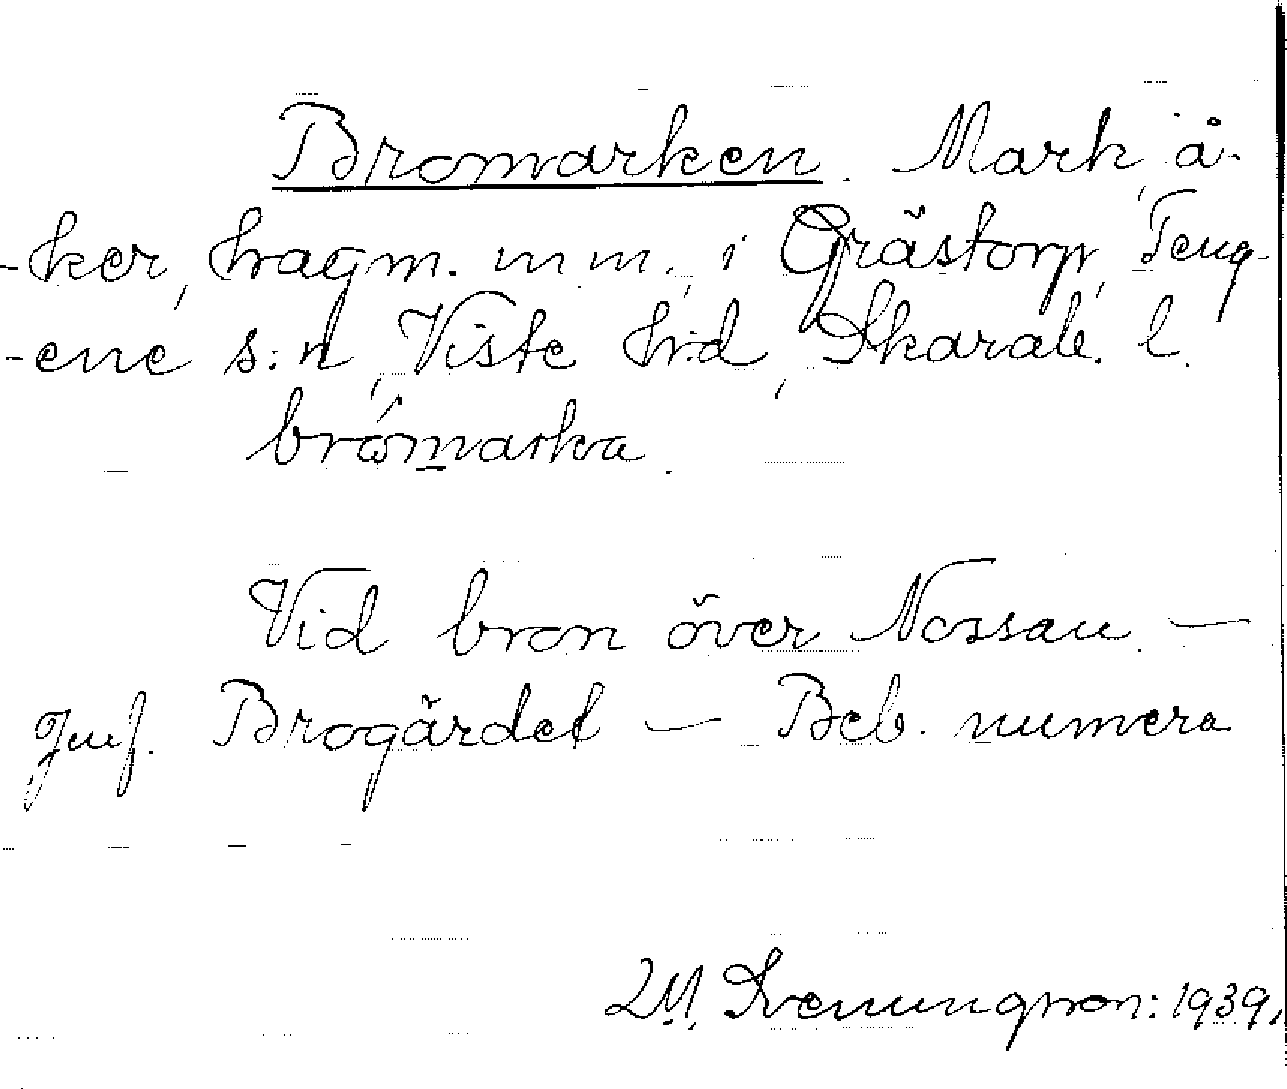 Bromarken. Mark, å-
-ker, hagm. m m., i Grästorp, Teng-
-ene s:n, Viste h:d, Skarab. l.
brómarka.
Vid bron över Nossan. —
Jmf. Brogärdet — Beb. numera
M. Svenungsson: 1939.